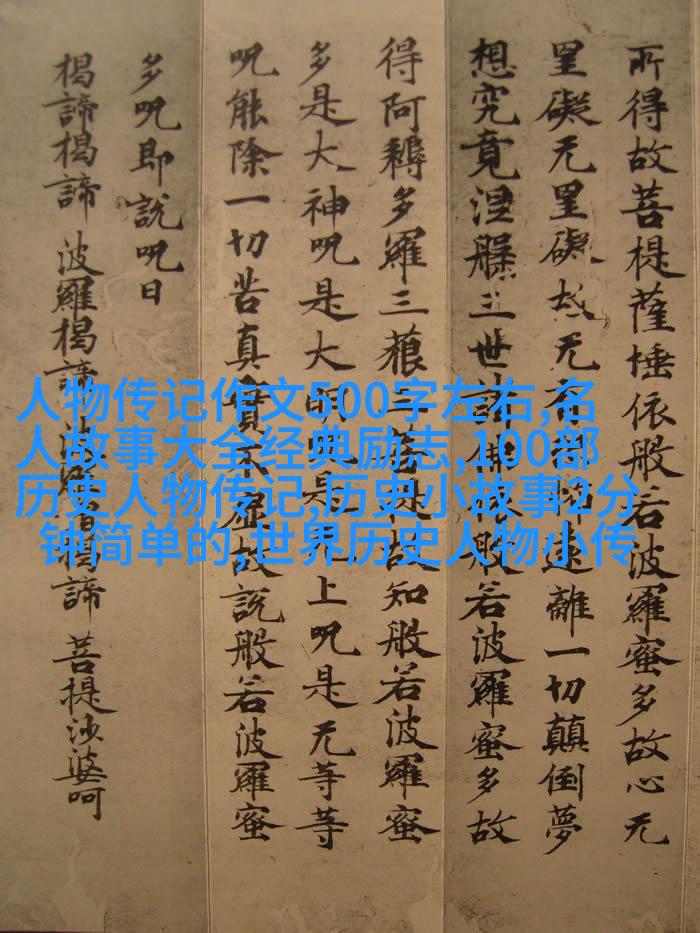 所得故菩提薩埵依般若波羅蜜多故心无
罣礙无罣礙故无有遠離一切顛倒夢
想究竟涅槃三世諸佛依般若波羅蜜多故
得阿耨多羅三藐三菩提故知般若波羅蜜
多是大神呪是大明是无上呪是无等等
呪能除一切苦真實不虛故說般若波羅蜜
多呪即說呪曰
揭諦揭諦 波羅揭諦 波羅僧揭諦 菩提沙婆呵
人物传记作文500字左右,名
人故事大全经典励志,100部
历史人物传记,历史小故事2分
钟简单的,世界历史人物小传